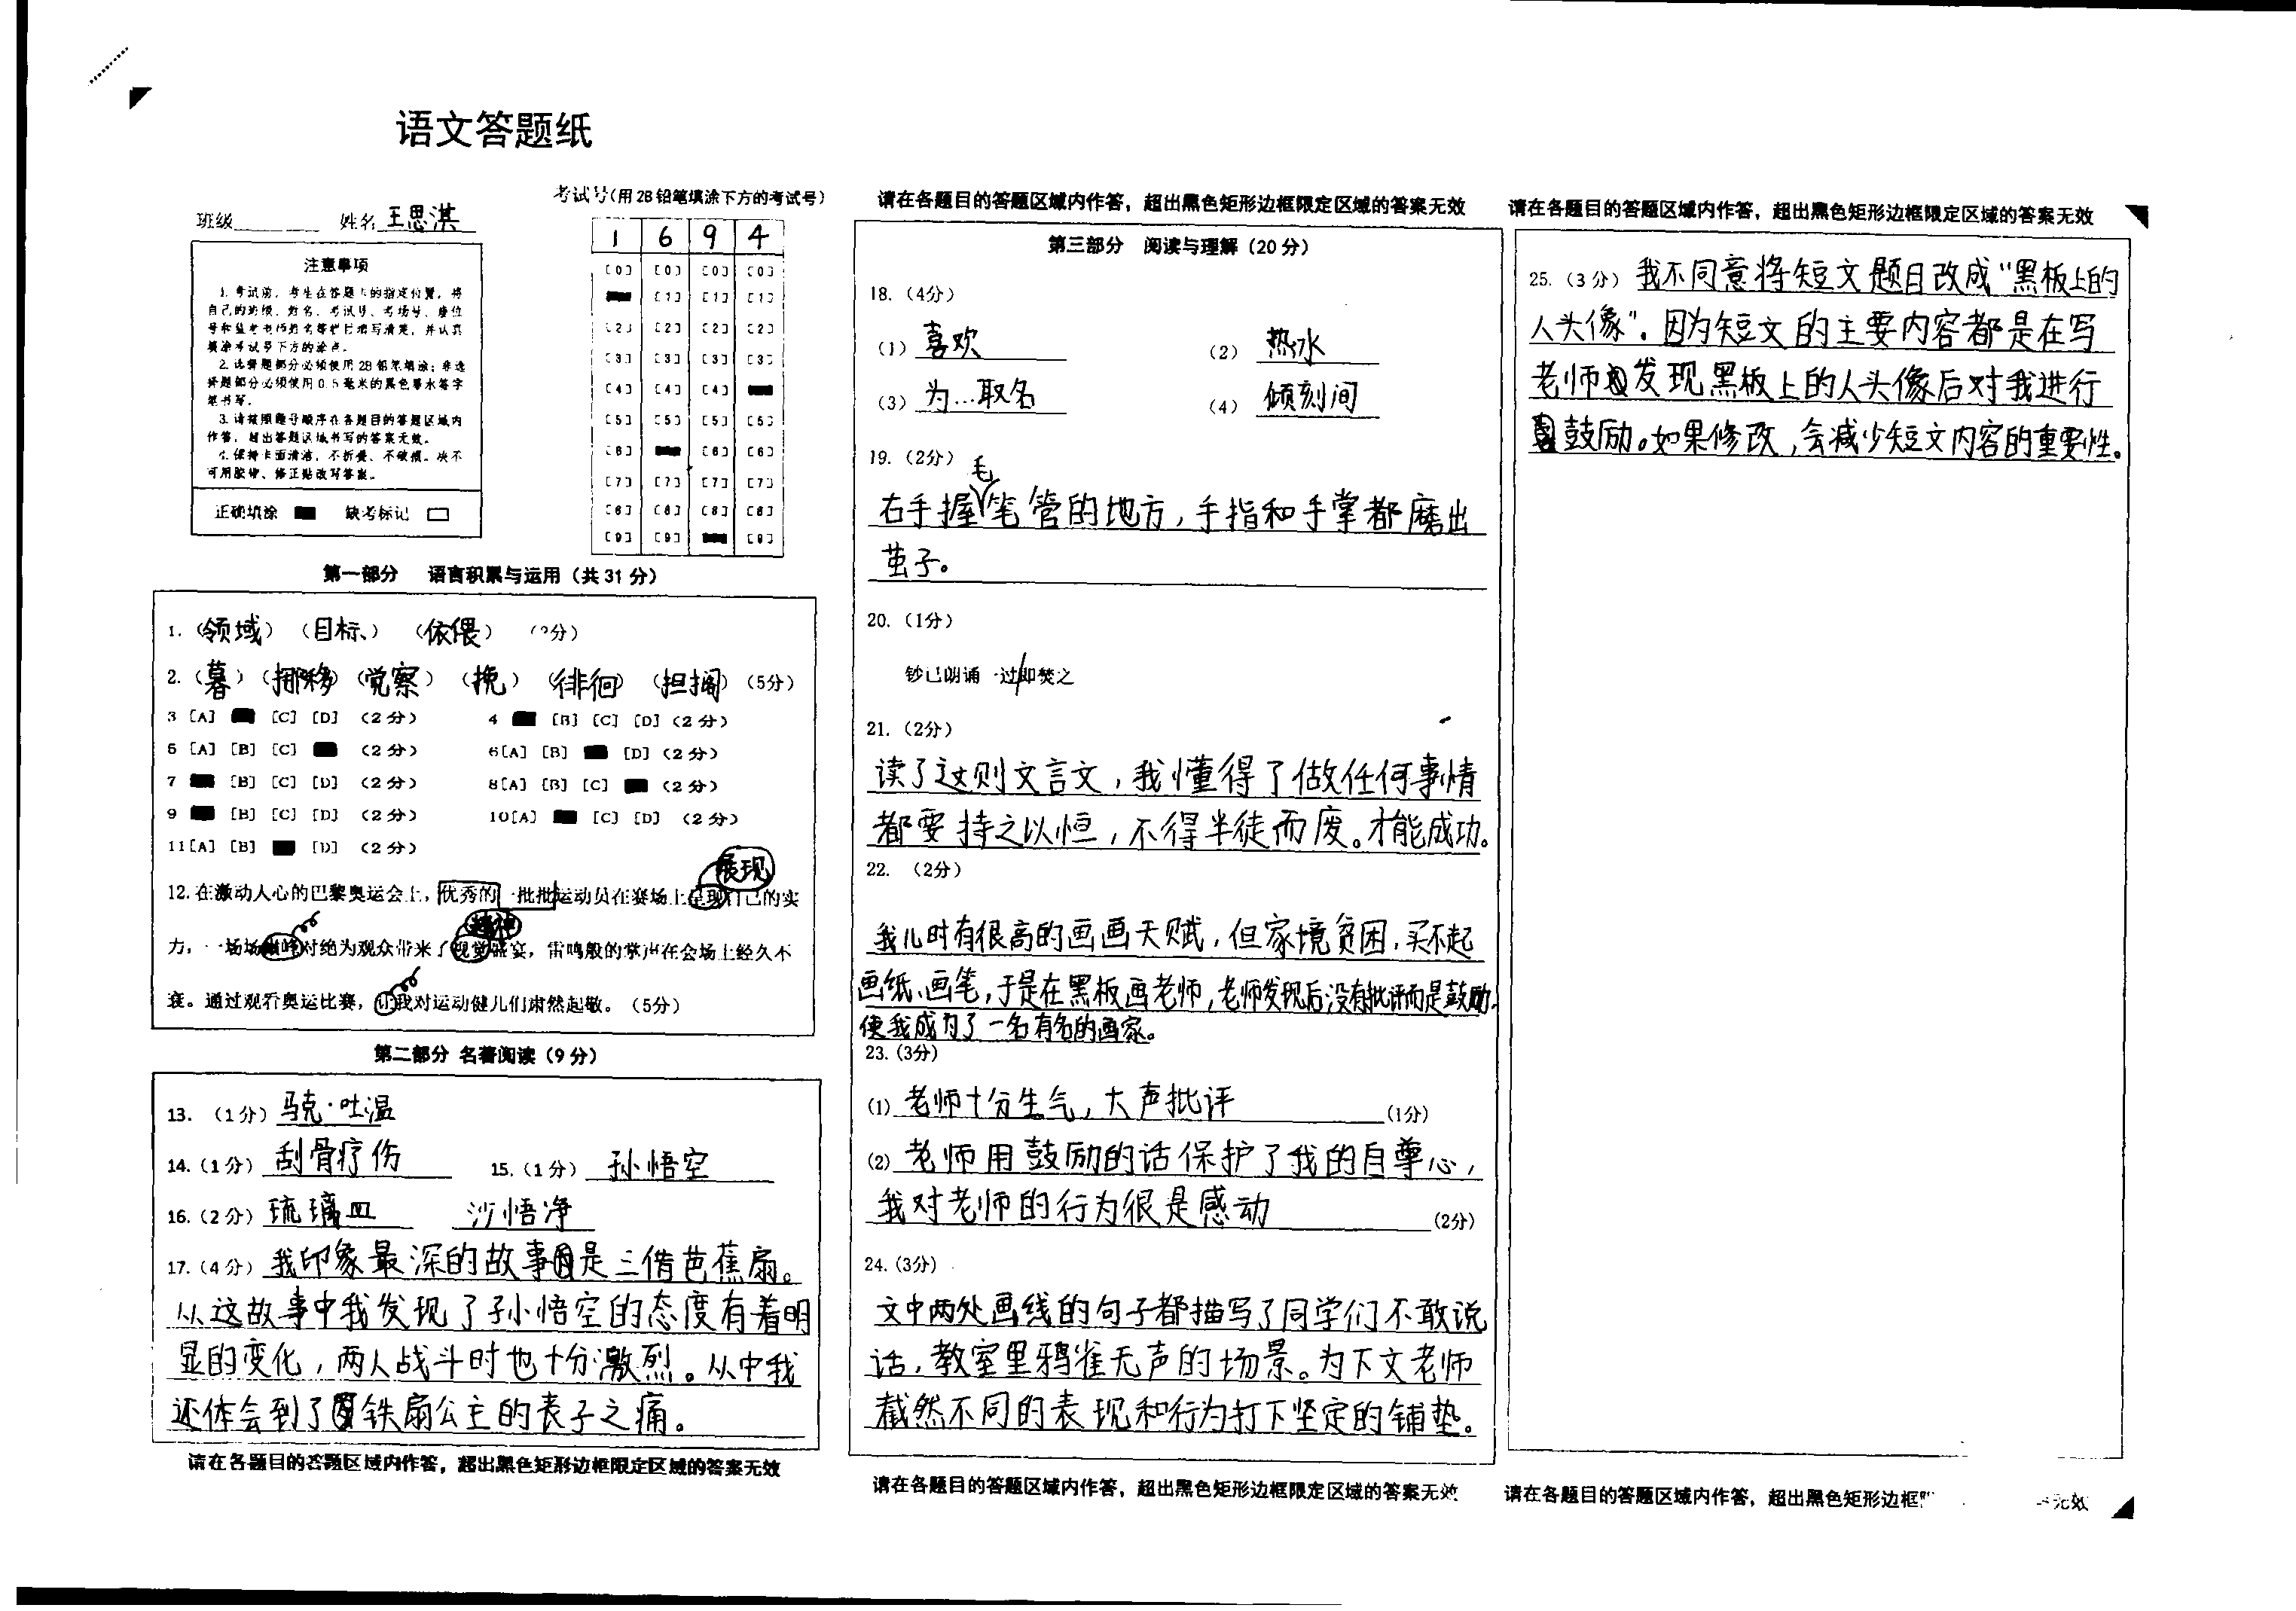 语文答题纸
班级 姓名 王思淇
考试号(用2B铅笔填涂下方的考试号)
1 6 9 4
[0] [0] [0] [0]
[1] [1] [1]
[2] [2] [2] [2]
[3] [3] [3] [3]
[4] [4] [4]
[5] [5] [5] [5]
[6] [6] [6]
[7] [7] [7] [7]
[8] [8] [8] [8]
[9] [9] [9]
注意事项
1. 考试前，考生在答题卡的指定位置，将
自己的班级、姓名、考试号、考场号、座位
号和监考老师姓名等栏目填写清楚，并认真
填涂考试号下方的涂点。
2. 选择题部分必须使用2B铅笔填涂；非选
择题部分必须使用0.5毫米的黑色墨水签字
笔书写。
3. 请按照题号顺序在各题目的答题区域内
作答，超出答题区域书写的答案无效。
4. 保持卡面清洁，不折叠、不破损。决不
可用胶带、修正贴改写答案。
正确填涂 缺考标记
第一部分 语言积累与运用（共31分）
1.（领域）（目标）（依偎）
2.（暮）（挪移）（觉察）（挽）（徘徊）（担搁）（5分）
3 [A] [C] [D] （2分） 4 [B] [C] [D]（2分）
5 [A] [B] [C] （2分） 6[A] [B] [D]（2分）
7 [B] [C] [D] （2分） 8[A] [B] [C] （2分）
9 [B] [C] [D] （2分） 10[A] [C] [D] （2分）
11[A] [B] [D] （2分）
展现
12.在激动人心的巴黎奥运会上，优秀的一批批运动员在赛场上呈现自己的实
精神
力，一场场巅峰对绝为观众带来了视觉盛宴，雷鸣般的掌声在会场上经久不
衰。通过观看奥运比赛，让我对运动健儿们肃然起敬。（5分）
第二部分 名著阅读（9分）
13. （1分）马克·吐温
14.（1分）刮骨疗伤 15.（1分）孙悟空
16.（2分）琉璃皿 沙悟净
17.（4分）我印象最深的故事是三借芭蕉扇。
从这故事中我发现了孙悟空的态度有着明
显的变化，两人战斗时也十分激烈。从中我
还体会到了铁扇公主的丧子之痛。
请在各题目的答题区域内作答，超出黑色矩形边框限定区域的答案无效
请在各题目的答题区域内作答，超出黑色矩形边框限定区域的答案无效
第三部分 阅读与理解（20分）
18.（4分）
（1）喜欢 （2）热水
（3）为…取名 （4）倾刻间
19.（2分）
毛
右手握笔管的地方，手指和手掌都磨出
茧子。
20.（1分）
钞已朗诵一过即焚之
21.（2分）
读了这则文言文，我懂得了做任何事情
都要持之以恒，不得半徒而废。才能成功。
22. （2分）
我儿时有很高的画画天赋，但家境贫困，买不起
画纸、画笔，于是在黑板画老师，老师发现后没有批评而是鼓励，
使我成为了一名有名的画家。
23.（3分）
（1）老师十分生气，大声批评（1分）
（2）老师用鼓励的话保护了我的自尊心，
我对老师的行为很是感动（2分）
24.（3分）
文中两处画线的句子都描写了同学们不敢说
话，教室里鸦雀无声的场景。为下文老师
截然不同的表现和行为打下坚定的铺垫。
请在各题目的答题区域内作答，超出黑色矩形边框限定区域的答案无效
请在各题目的答题区域内作答，超出黑色矩形边框限定区域的答案无效
25.（3分）我不同意将短文题目改成“黑板上的
人头像”。因为短文的主要内容都是在写
老师发现黑板上的人头像后对我进行
鼓励。如果修改，会减少短文内容的重要性。
请在各题目的答题区域内作答，超出黑色矩形边框 无效